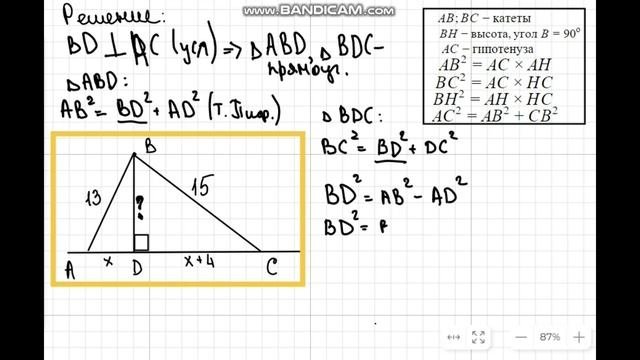 WWW.BANDICAM.COM
Решение:
BD ⊥ AC (усл) => △ABD, △BDC -
прямоуг.
△ABD:
AB² = BD² + AD² (т. Пифор.)
B
13
15
?
A
x
D
x+4
C
△BDC:
BC² = BD² + DC²
BD² = AB² - AD²
BD² =
AB; BC – катеты
BH – высота, угол B = 90⁰
AC – гппотенуза
AB² = AC × AH
BC² = AC × HC
BH² = AH × HC
AC² = AB² + CB²
87%